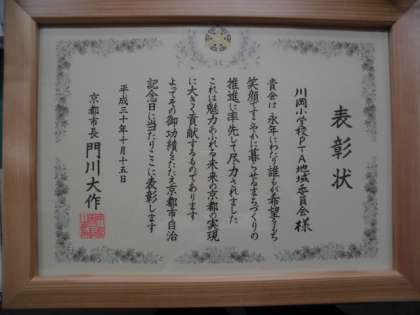 表彰状
川岡小学校PTA地域委員会様
貴会は永年にわたり誰もが希望をもち
笑顔ですこやかに暮らせるまちづくりの
推進に率先して尽力されました
これは魅力あふれる未来の京都の実現
に大きく貢献するものであります
よってその御功績をたたえ京都市自治
記念日に当たりここに表彰します
平成三十年十月十五日
京都市長 門川大作